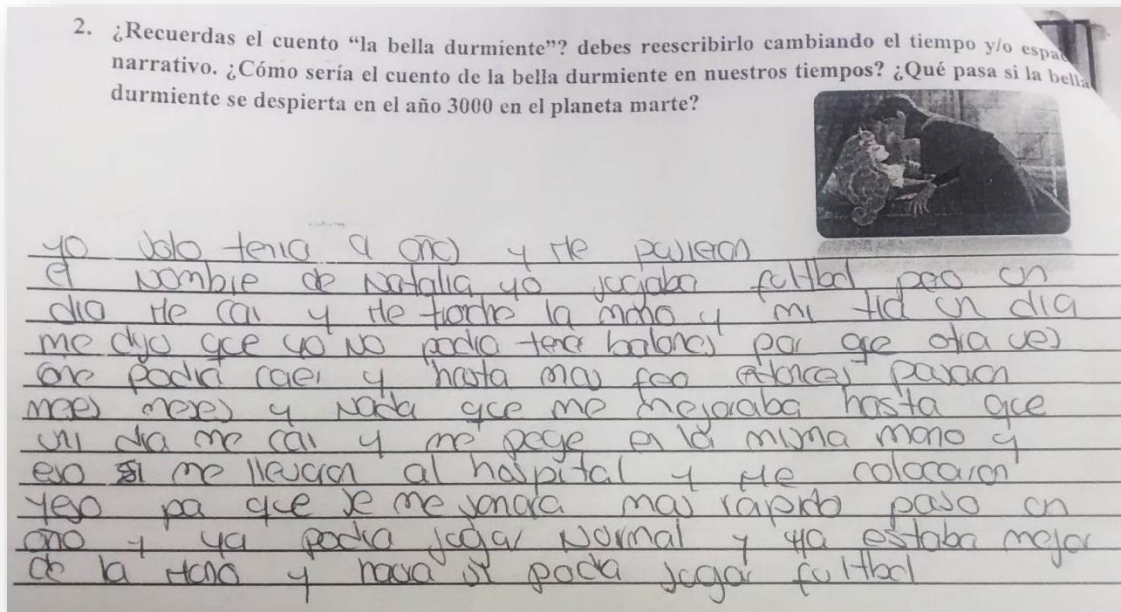 2. ¿Recuerdas el cuento “la bella durmiente”? debes reescribirlo cambiando el tiempo y/o espac
narrativo. ¿Cómo sería el cuento de la bella durmiente en nuestros tiempos? ¿Qué pasa si la bella
durmiente se despierta en el año 3000 en el planeta marte?
yo solo tenia 9 años y me pusieron
el nombre de Natalia yo jugaba futbol pero un
dia me cai y me tronche la mano y mi tia un dia
me dijo que yo no podia tener balones por que otra ves
me podia caer y hasta mas feo entonces pasaron
mees meses y nada que me mejoraba hasta que
un dia me cai y me pege en la misma mano y
eso si me llevaron al hospital y me colocaron
yeso pa que se me sanara mas rápido paso un
año y ya podia jugar normal y ya estaba mejor
de la mano y si podia jugar futbol